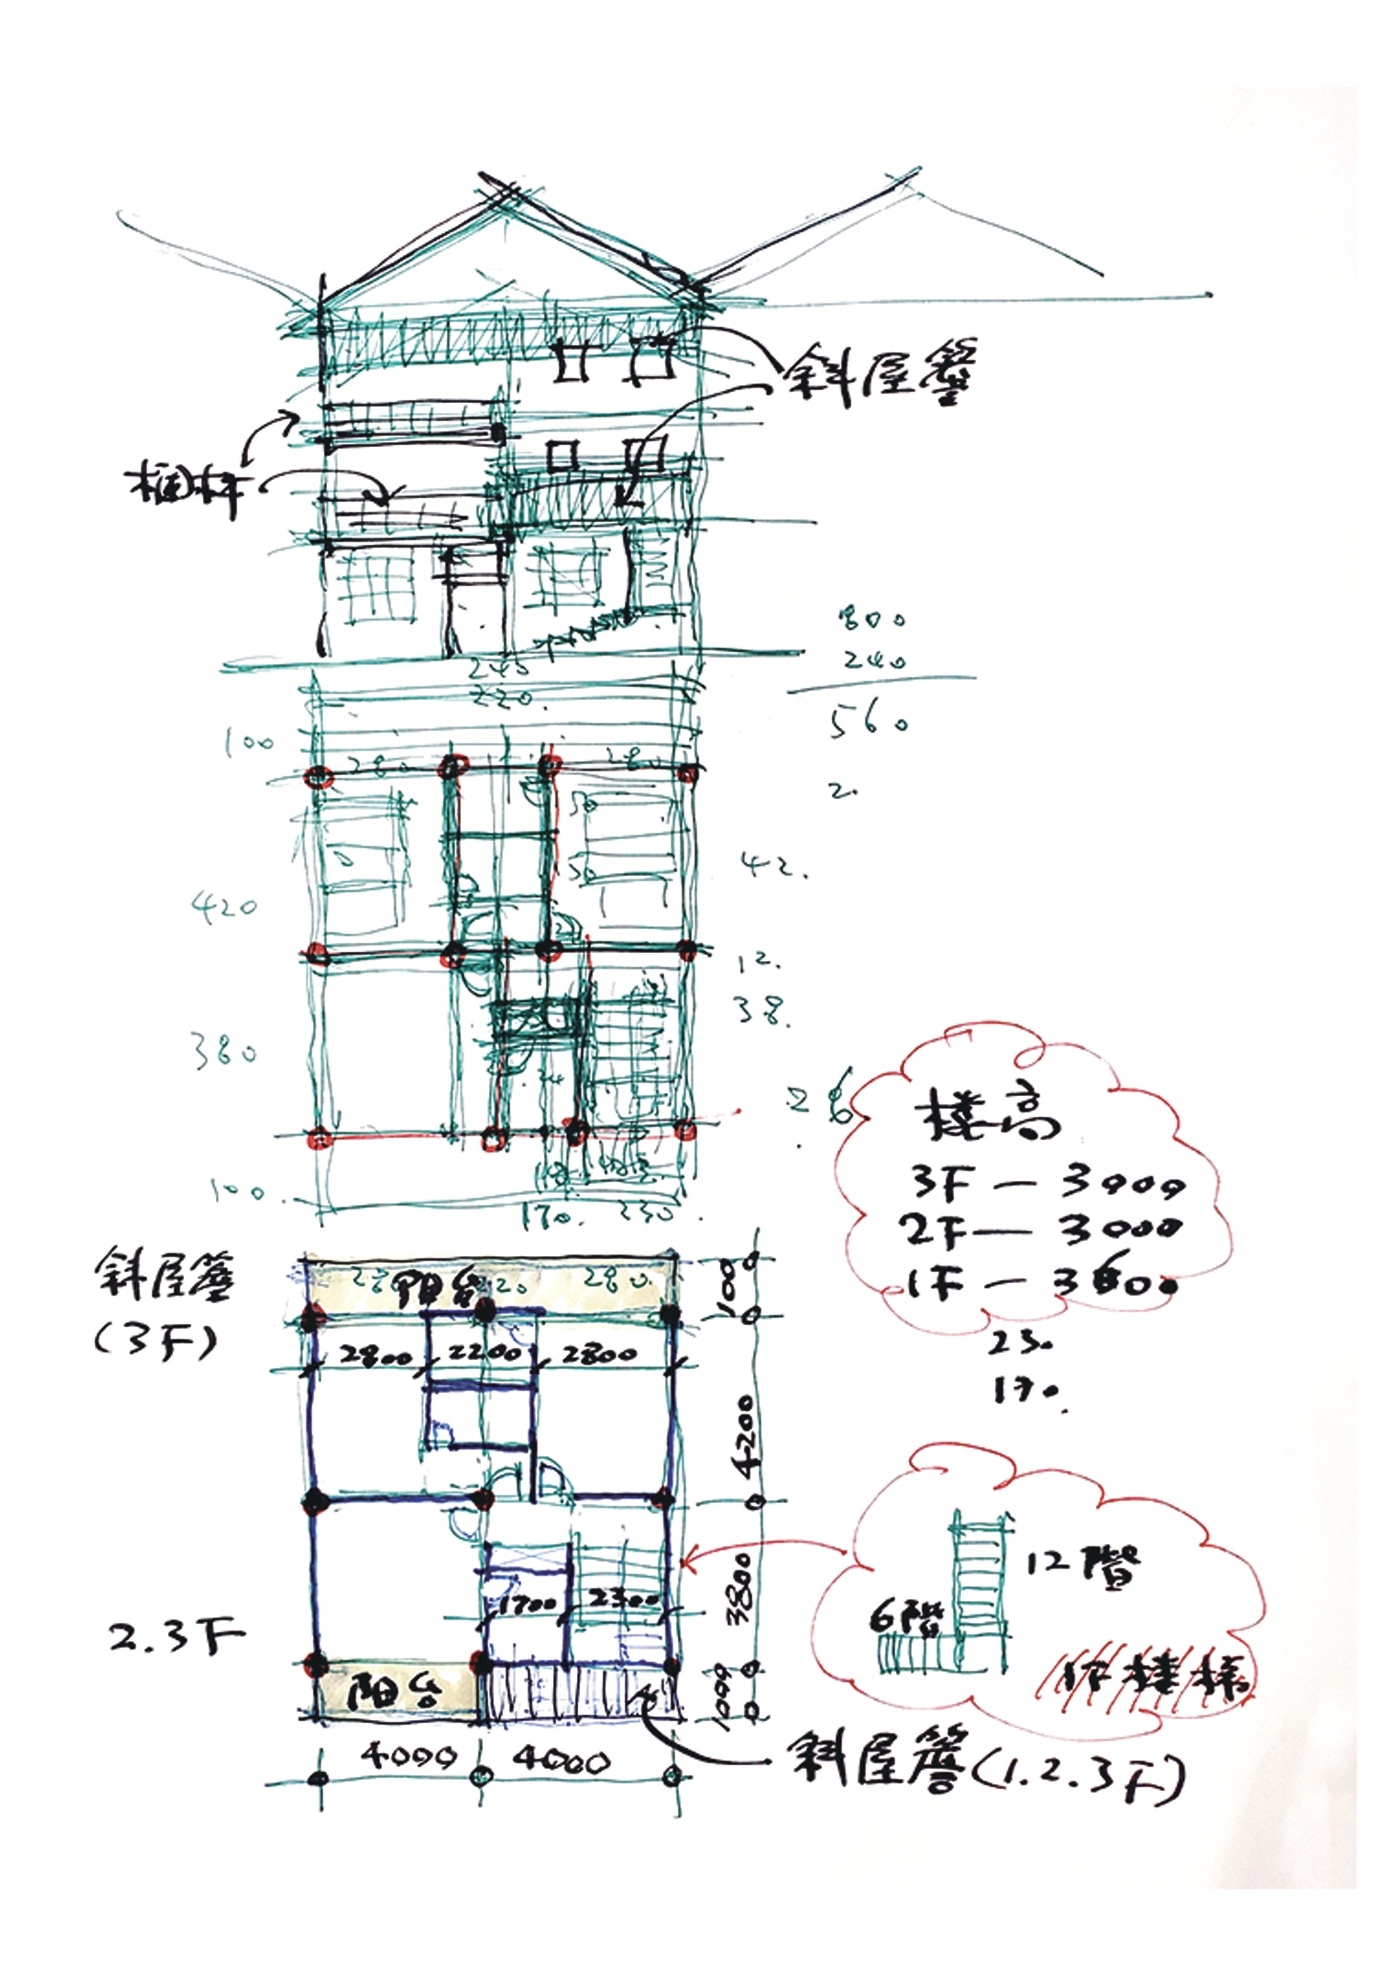 斜屋簷
栏杆
800
240
560
2.
240
220.
100
280
280
50
50
420
42.
12.
38.
380
26
100.
170.
230
楼高
3F — 3000
2F — 3000
1F — 3600
230.
170.
斜屋簷
(3F)
阳台
280.
100
2800
2200
2800
4200
3800
1700
2300
1000
12階
6階
2.3F
阳台
4000
4000
斜屋簷(1.2.3F)